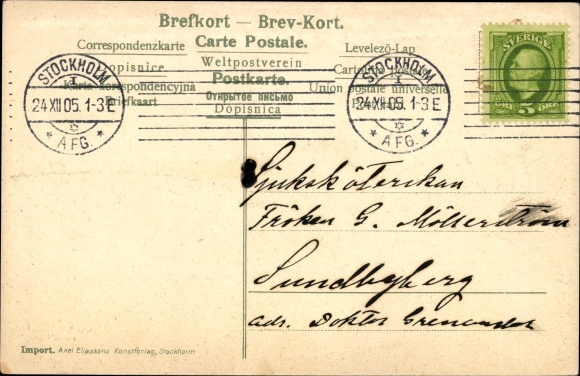 Brefkort — Brev-Kort.
Correspondenzkarte Carte Postale. Levelezö-Lap
Dopisnice Weltpostverein
Karta korrespondencyjna Postkarte. Union postale universelle
Briefkaart Открытое письмо
Dopisnica
STOCKHOLM
1
24 XII 05. 1-3 E
AFG.
STOCKHOLM
1
24 XII 05. 1-3 E
AFG.
SVERIGE
ÖRE 5 ÖRE
Sjuksköterskan
Fröken G. Möllerström
Sundbyberg
adr. Doktor
Import. Axel Eliassons Konstförlag, Stockholm